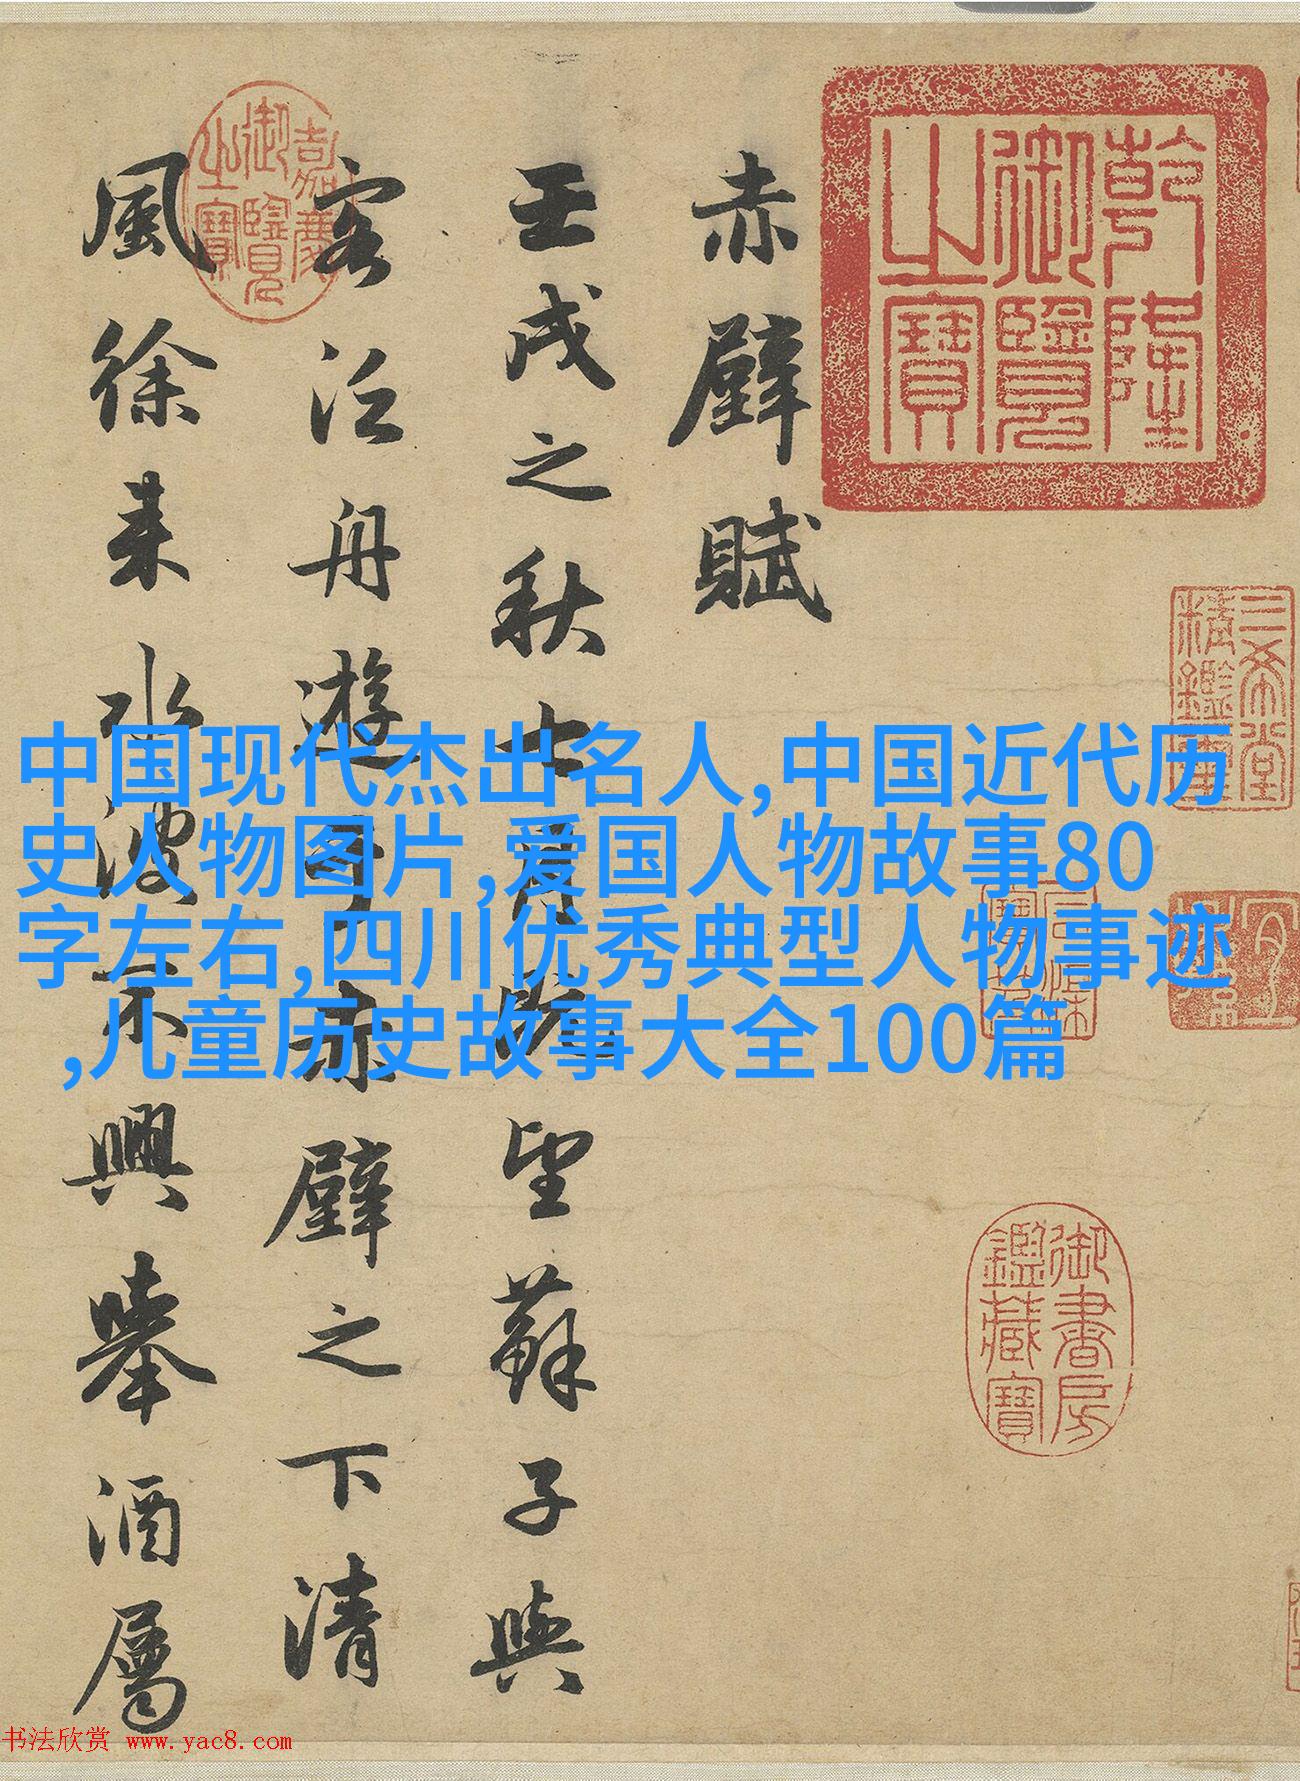 乾隆御覽之寶
三希堂精鑑璽
宜子孫
石渠寶笈
御書房鑑藏寶
赤壁賦
壬戌之秋七月既望蘇子與
客泛舟遊于赤壁之下清
風徐来水波不興舉酒屬
嘉慶御覽之寶
中国现代杰出名人,中国近代历
史人物图片,爱国人物故事80
字左右,四川优秀典型人物事迹
,儿童历史故事大全100篇
书法欣赏 www.yac8.com